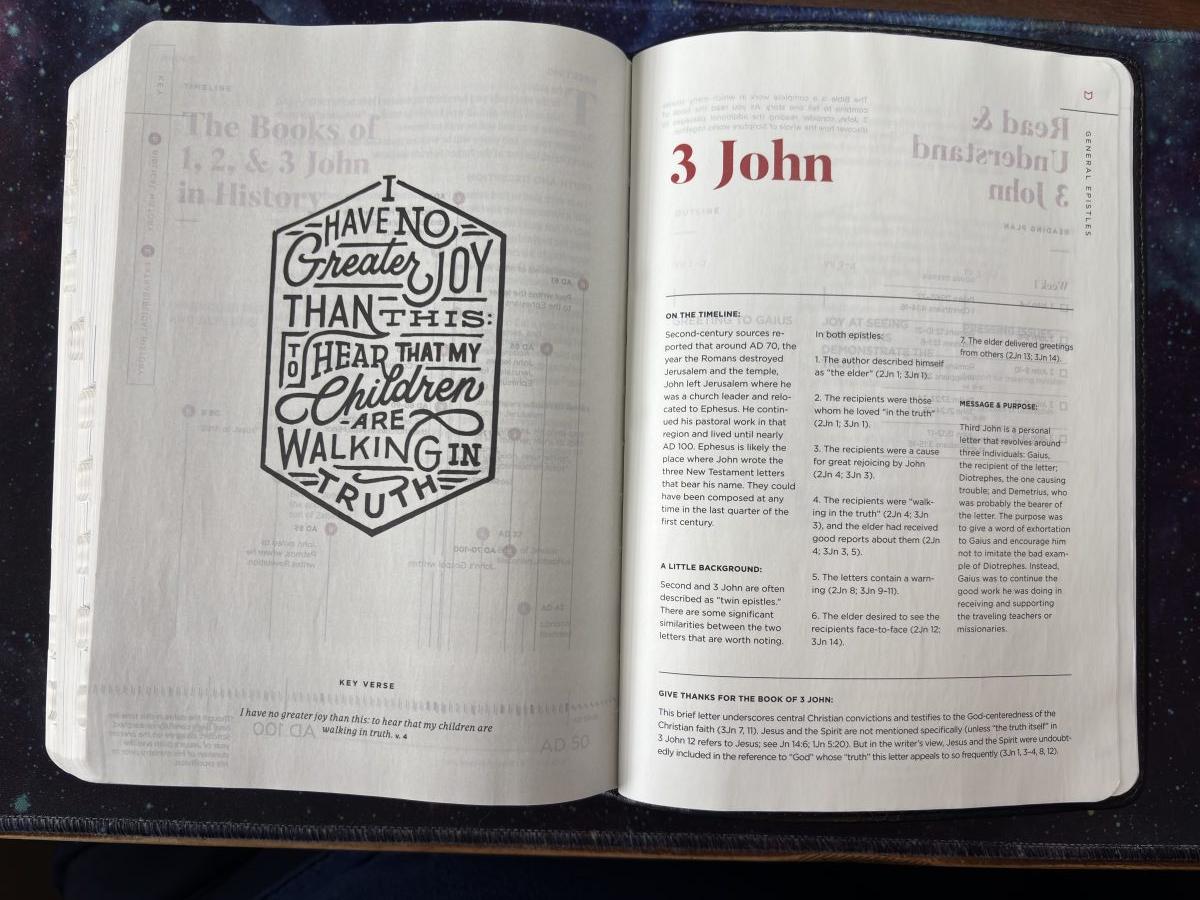 I
HAVE NO
Greater JOY
THAN THIS:
TO HEAR THAT MY
Children
ARE
WALKING IN
TRUTH
KEY VERSE
I have no greater joy than this: to hear that my children are
walking in truth. v. 4
GENERAL EPISTLES
3 John
ON THE TIMELINE:
Second-century sources re-
ported that around AD 70, the
year the Romans destroyed
Jerusalem and the temple,
John left Jerusalem where he
was a church leader and relo-
cated to Ephesus. He contin-
ued his pastoral work in that
region and lived until nearly
AD 100. Ephesus is likely the
place where John wrote the
three New Testament letters
that bear his name. They could
have been composed at any
time in the last quarter of the
first century.
A LITTLE BACKGROUND:
Second and 3 John are often
described as "twin epistles."
There are some significant
similarities between the two
letters that are worth noting.
In both epistles:
1. The author described himself
as "the elder" (2Jn 1; 3Jn 1).
2. The recipients were those
whom he loved "in the truth"
(2Jn 1; 3Jn 1).
3. The recipients were a cause
for great rejoicing by John
(2Jn 4; 3Jn 3).
4. The recipients were "walk-
ing in the truth" (2Jn 4; 3Jn
3), and the elder had received
good reports about them (2Jn
4; 3Jn 3, 5).
5. The letters contain a warn-
ing (2Jn 8; 3Jn 9–11).
6. The elder desired to see the
recipients face-to-face (2Jn 12;
3Jn 14).
7. The elder delivered greetings
from others (2Jn 13; 3Jn 14).
MESSAGE & PURPOSE:
Third John is a personal
letter that revolves around
three individuals: Gaius,
the recipient of the letter;
Diotrephes, the one causing
trouble; and Demetrius, who
was probably the bearer of
the letter. The purpose was
to give a word of exhortation
to Gaius and encourage him
not to imitate the bad exam-
ple of Diotrephes. Instead,
Gaius was to continue the
good work he was doing in
receiving and supporting
the traveling teachers or
missionaries.
GIVE THANKS FOR THE BOOK OF 3 JOHN:
This brief letter underscores central Christian convictions and testifies to the God-centeredness of the
Christian faith (3Jn 7, 11). Jesus and the Spirit are not mentioned specifically (unless "the truth itself" in
3 John 12 refers to Jesus; see Jn 14:6; 1Jn 5:20). But in the writer's view, Jesus and the Spirit were undoubt-
edly included in the reference to "God" whose "truth" this letter appeals to so frequently (3Jn 1, 3–4, 8, 12).